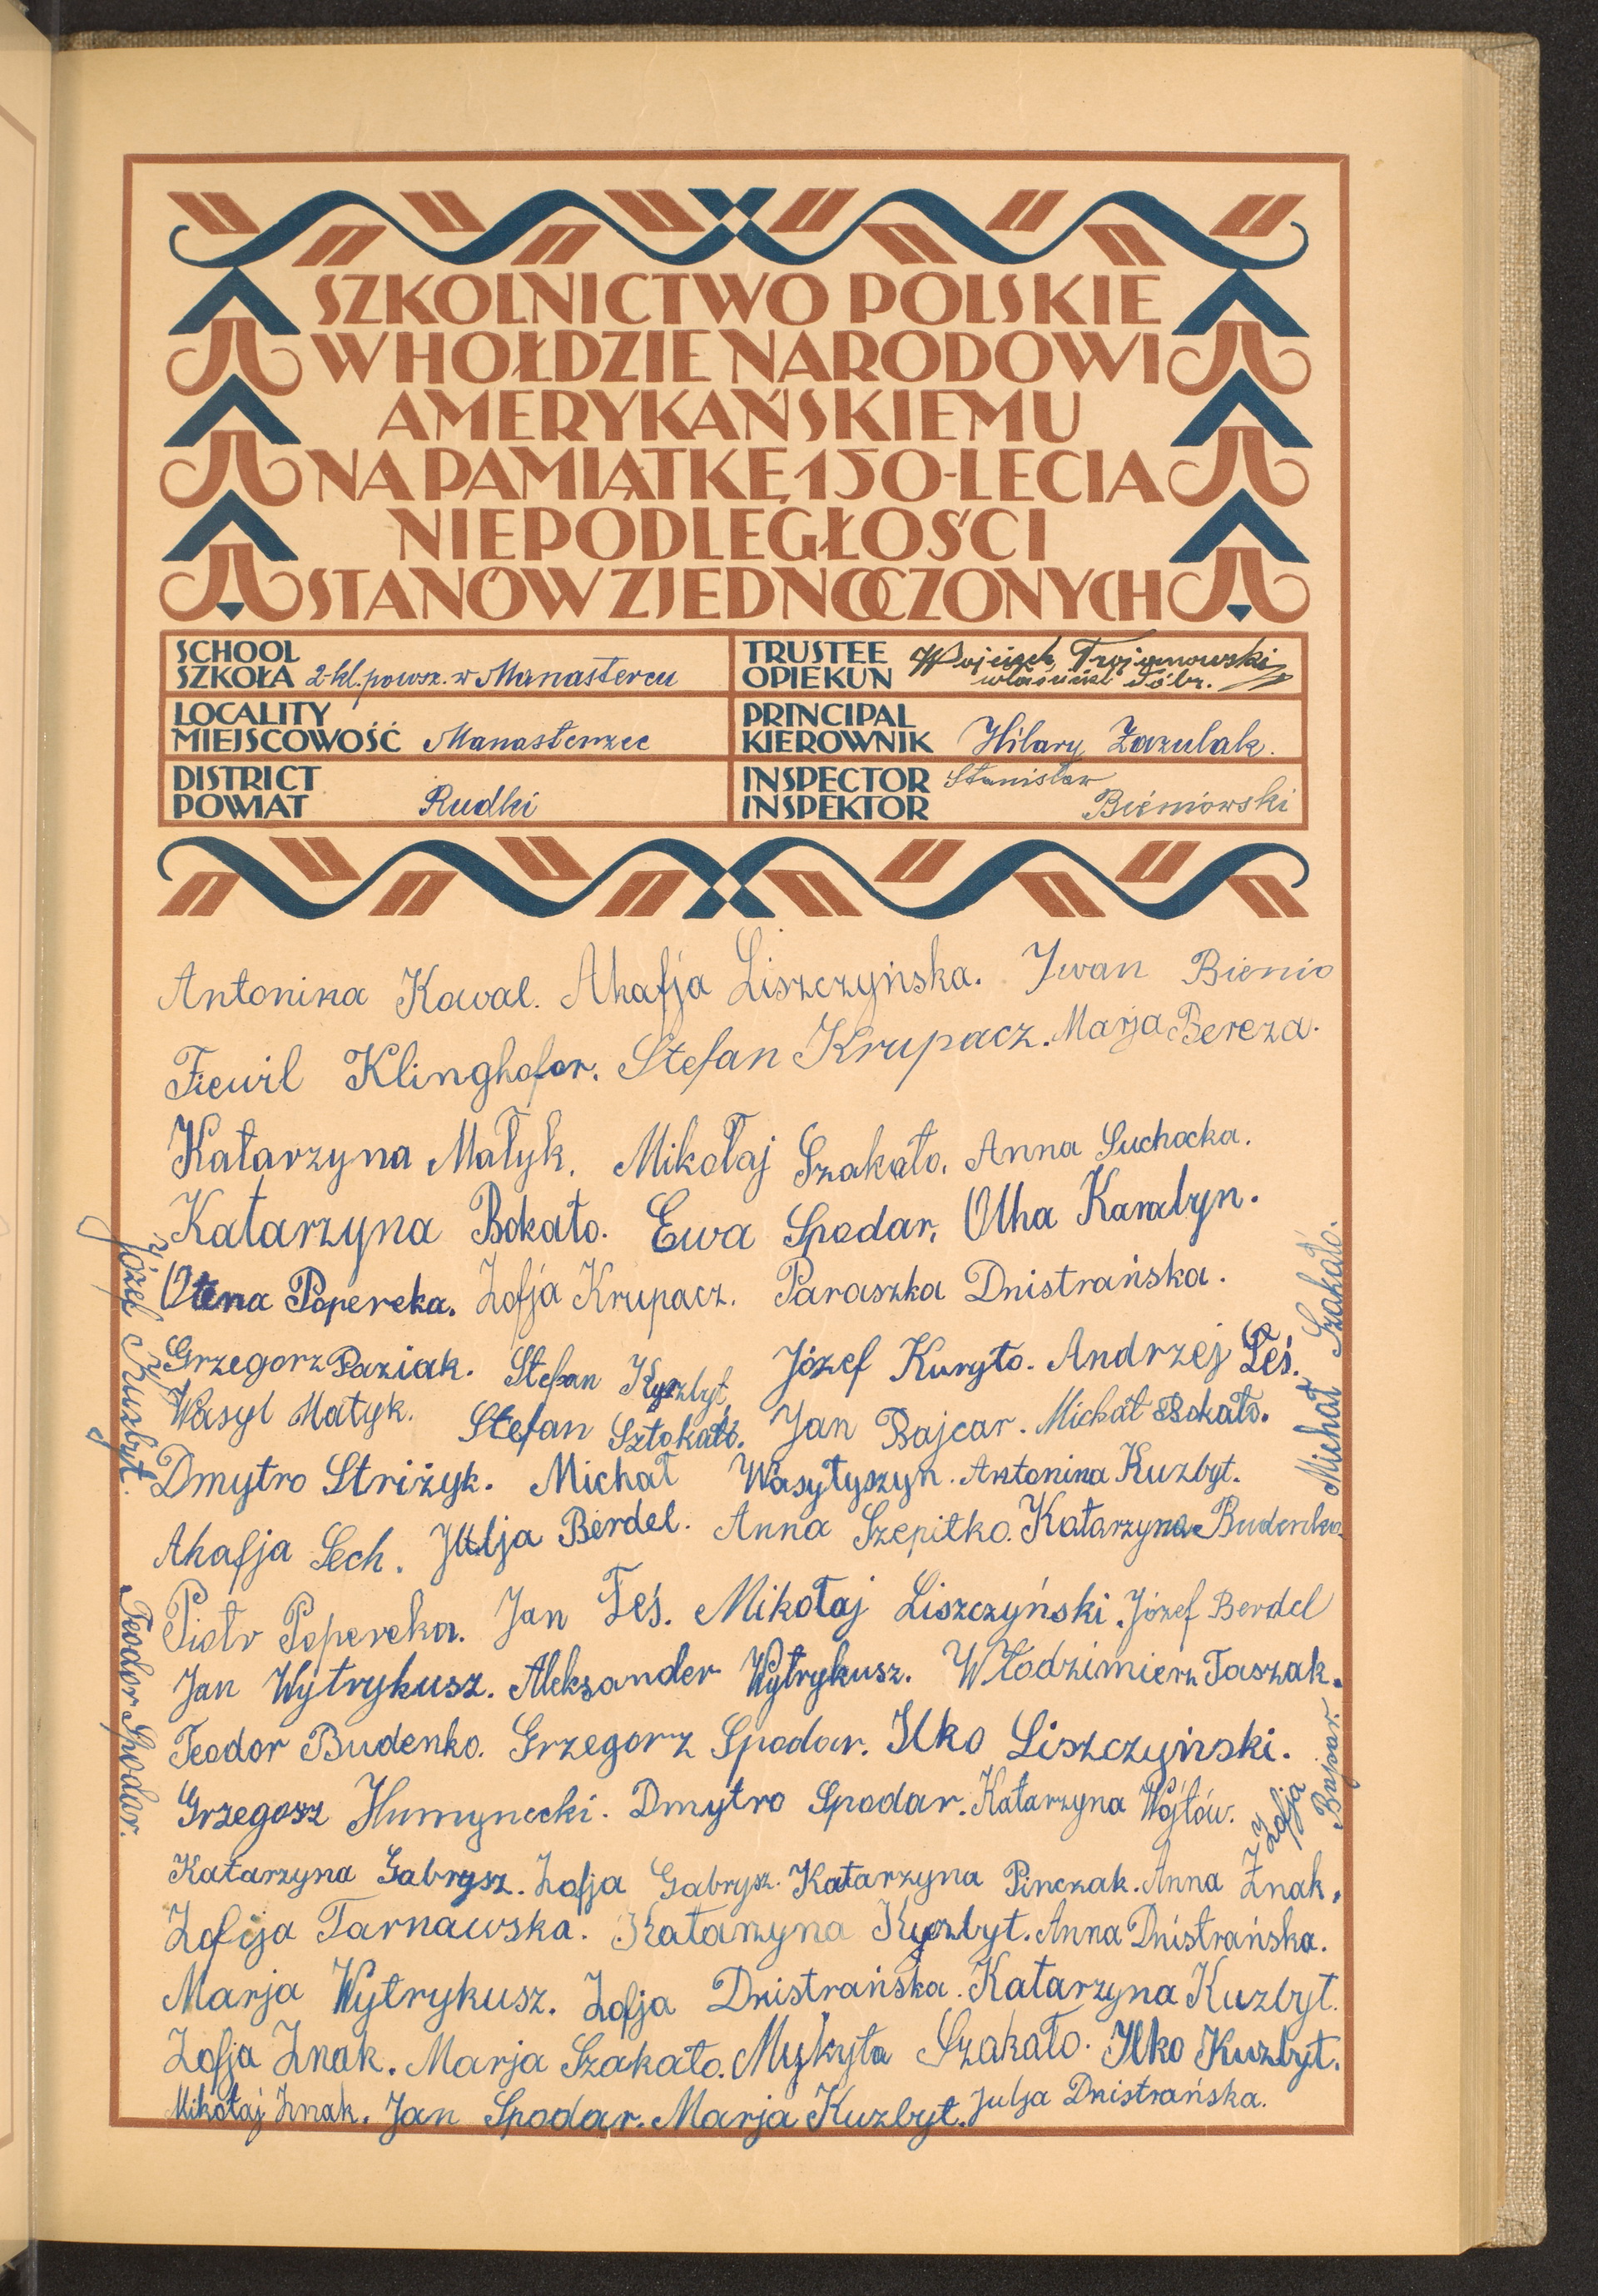 SZKOLNICTWO POLSKIE
W HOŁDZIE NARODOWI
AMERYKAŃSKIEMU
NA PAMIĄTKĘ 150-LECIA
NIEPODLEGŁOŚCI
STANÓW ZJEDNOCZONYCH
SCHOOL
SZKOŁA 2-kl. powsz. w Manastercu
LOCALITY
MIEJSCOWOŚĆ Manasterzec
DISTRICT
POWIAT Rudki
TRUSTEE
OPIEKUN Wojciech Trojanowski
właściciel dóbr.
PRINCIPAL
KIEROWNIK Hilary Zazulak.
INSPECTOR Stanisław
INSPEKTOR Bieniowski
Antonina Kowal. Ahafja Liszczyńska. Iwan Bienio
Fiewil Klinghofer. Stefan Krupacz. Marja Bereza.
Katarzyna Małyk. Mikołaj Szakało. Anna Suchocka.
Katarzyna Bokało. Ewa Spodar. Olha Karabyn.
Ołena Popereka. Zofja Krupacz. Paraszka Dnistrańska.
Grzegorz Paziak. Stefan Kyzbyt, Józef Kuryło. Andrzej Łeś.
Wasyl Matyk. Stefan Sztokało. Jan Bajcar. Michał Bokało.
Dmytro Striżyk. Michał Wasyłyszyn. Antonina Kuzbyt.
Ahafja Lech. Julja Berdel. Anna Szepitko. Katarzyna Budenko
Piotr Popereka. Jan Łeś. Mikołaj Liszczyński. Józef Berdel
Jan Wytrykusz. Aleksander Wytrykusz. Włodzimierz Taszak.
Teodor Budenko. Grzegorz Spodar. Ilko Liszczyński.
Grzegosz Humynecki. Dmytro Spodar. Katarzyna Wójtów.
Katarzyna Gabrysz. Zofja Gabrysz. Katarzyna Pinczak. Anna Znak.
Zofija Tarnawska. Katarzyna Kyzbyt. Anna Dnistrańska.
Marja Wytrykusz. Zofja Dnistrańska. Katarzyna Kuzbyt.
Zofja Znak. Marja Szakało. Mykyta Szakało. Ilko Kuzbyt.
Mikołaj Znak. Jan Spodar. Marja Kuzbyt. Julja Dnistrańska.
Józef Kuzbyt.
Teodor Spodar.
Michał Szakało.
Zofja